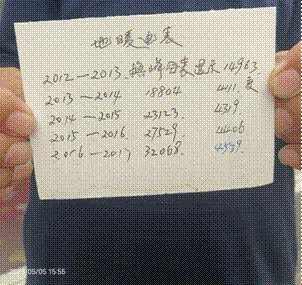 地暖电表
2012—2013.换峰谷表显示14963.
度
2013—2014 18804 411.
2014—2015 23123. 4319.
2015—2016. 27529. 4406
2016—2017 32068. 4539.
05/05 15:55